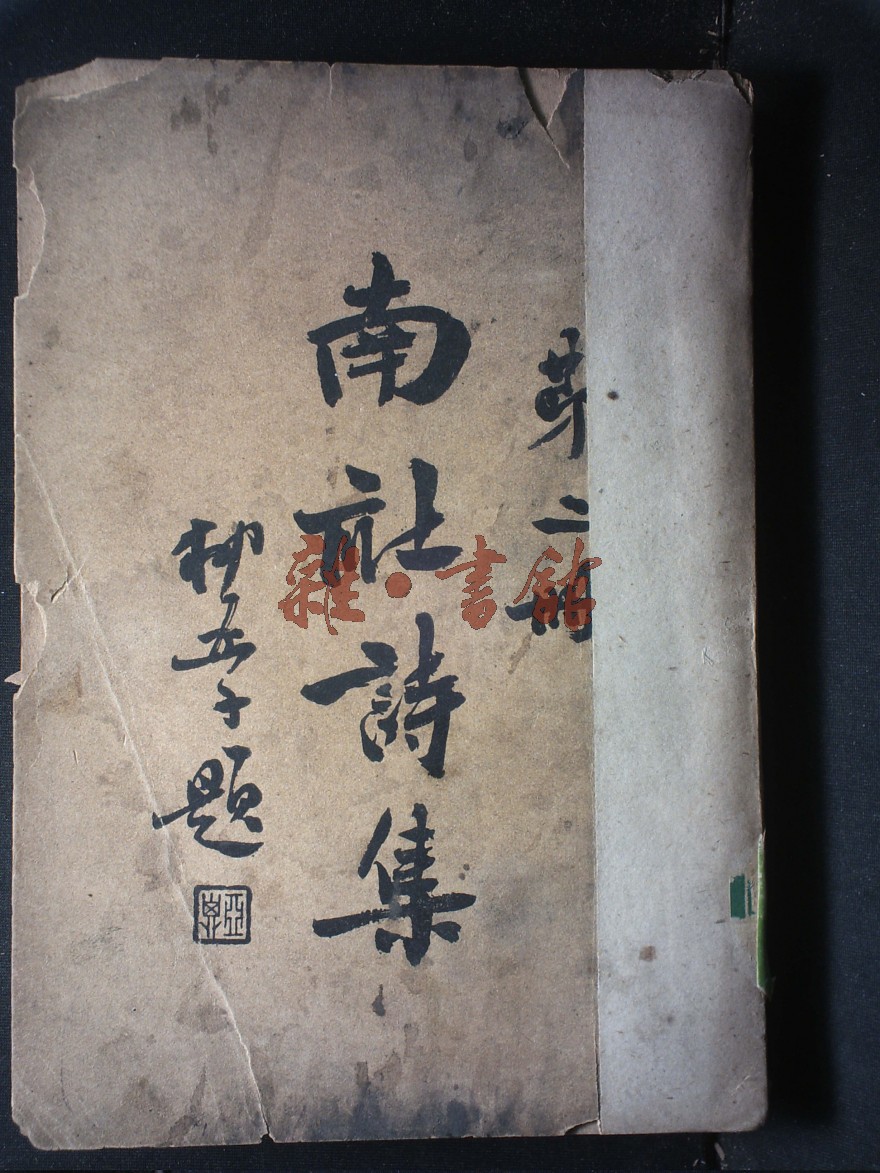 第二冊
南社詩集
柳亞子題
雜·書館